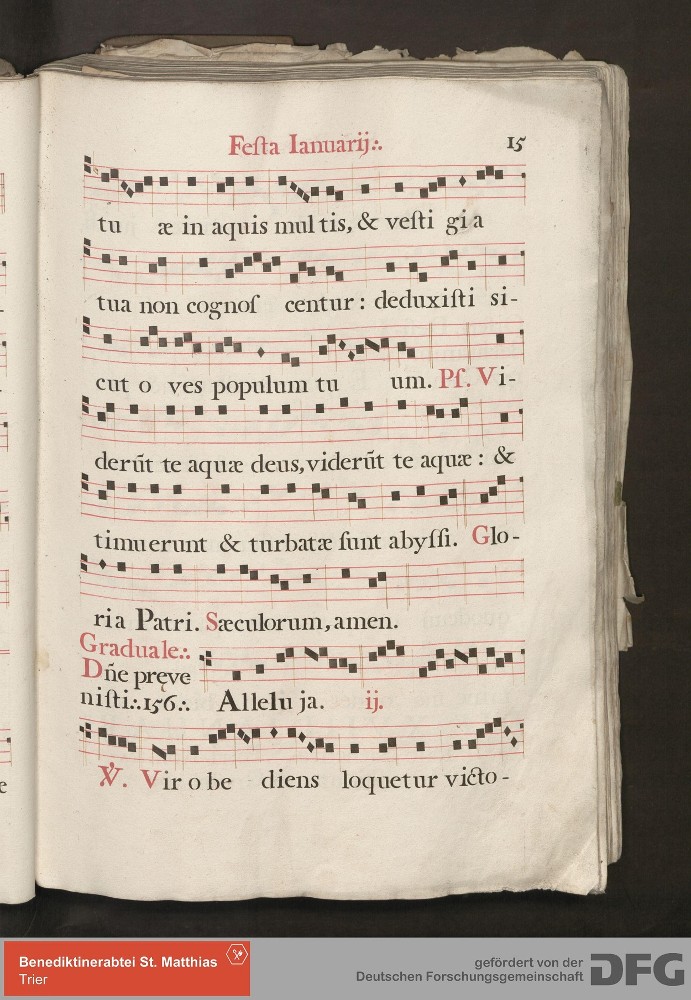 Feſta Ianuarij:.
15
tu æ in aquis multis, & veſti gia
tua non cognoſ centur: deduxiſti si-
cut o ves populum tu um. Pſ. Vi-
derūt te aquæ deus, viderūt te aquæ: &
timuerunt & turbatæ ſunt abyſſi. Glo-
ria Patri. Sæculorum, amen.
Graduale:.
Dñe preve
niſti:.156:. Alleluja. ij.
℣. Vir obe diens loquetur victo-
e
Benediktinerabtei St. Matthias
Trier
gefördert von der
Deutschen Forschungsgemeinschaft
DFG